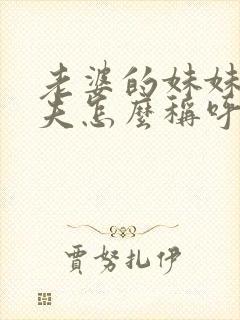 老婆的妹妹
夫怎麼稱呼
賈努扎伊